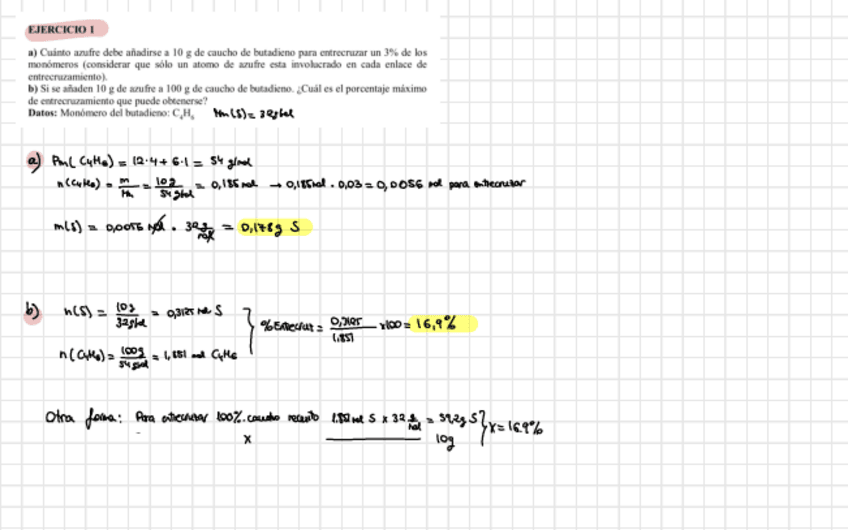 EJERCICIO 1
a) Cuánto azufre debe añadirse a 10 g de caucho de butadieno para entrecruzar un 3% de los
monómeros (considerar que sólo un atomo de azufre esta involucrado en cada enlace de
entrecruzamiento).
b) Si se añaden 10 g de azufre a 100 g de caucho de butadieno. ¿Cuál es el porcentaje máximo
de entrecruzamiento que puede obtenerse?
Datos: Monómero del butadieno: C4H6 Mm(S)= 32g/mol
a) Pm(C4H6) = 12·4 + 6·1 = 54 g/mol
n(C4H6) = m/Mm = 10g/54 g/mol = 0,185 mol → 0,185mol · 0,03 = 0,0056 mol para entrecruzar
m(S) = 0,0056 mol · 32 g/mol = 0,178g S
b) n(S) = 10g/32g/mol = 0,3125 mol S
% Entrecruz = 0,3125/1,851 x100 = 16,9%
n(C4H6) = 100g/54 g/mol = 1,851 mol C4H6
Otra forma: Para entrecruzar 100% caucho necesito 1.852 mol S x 32 g/mol = 59,2g S
x 10g } x = 16.9%